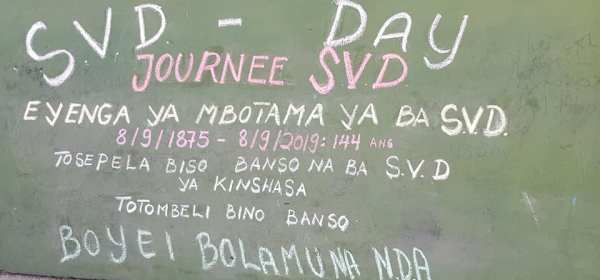 SVD - DAY
JOURNEE S.V.D
EYENGA YA MBOTAMA YA BA S.V.D.
8/9/1875 - 8/9/2019: 144 ANS
TOSEPELA BISO BANSO NA BA S.V.D
YA KINSHASA
TOTOMBELI BINO BANSO
BOYEI BOLAMU NA NDA